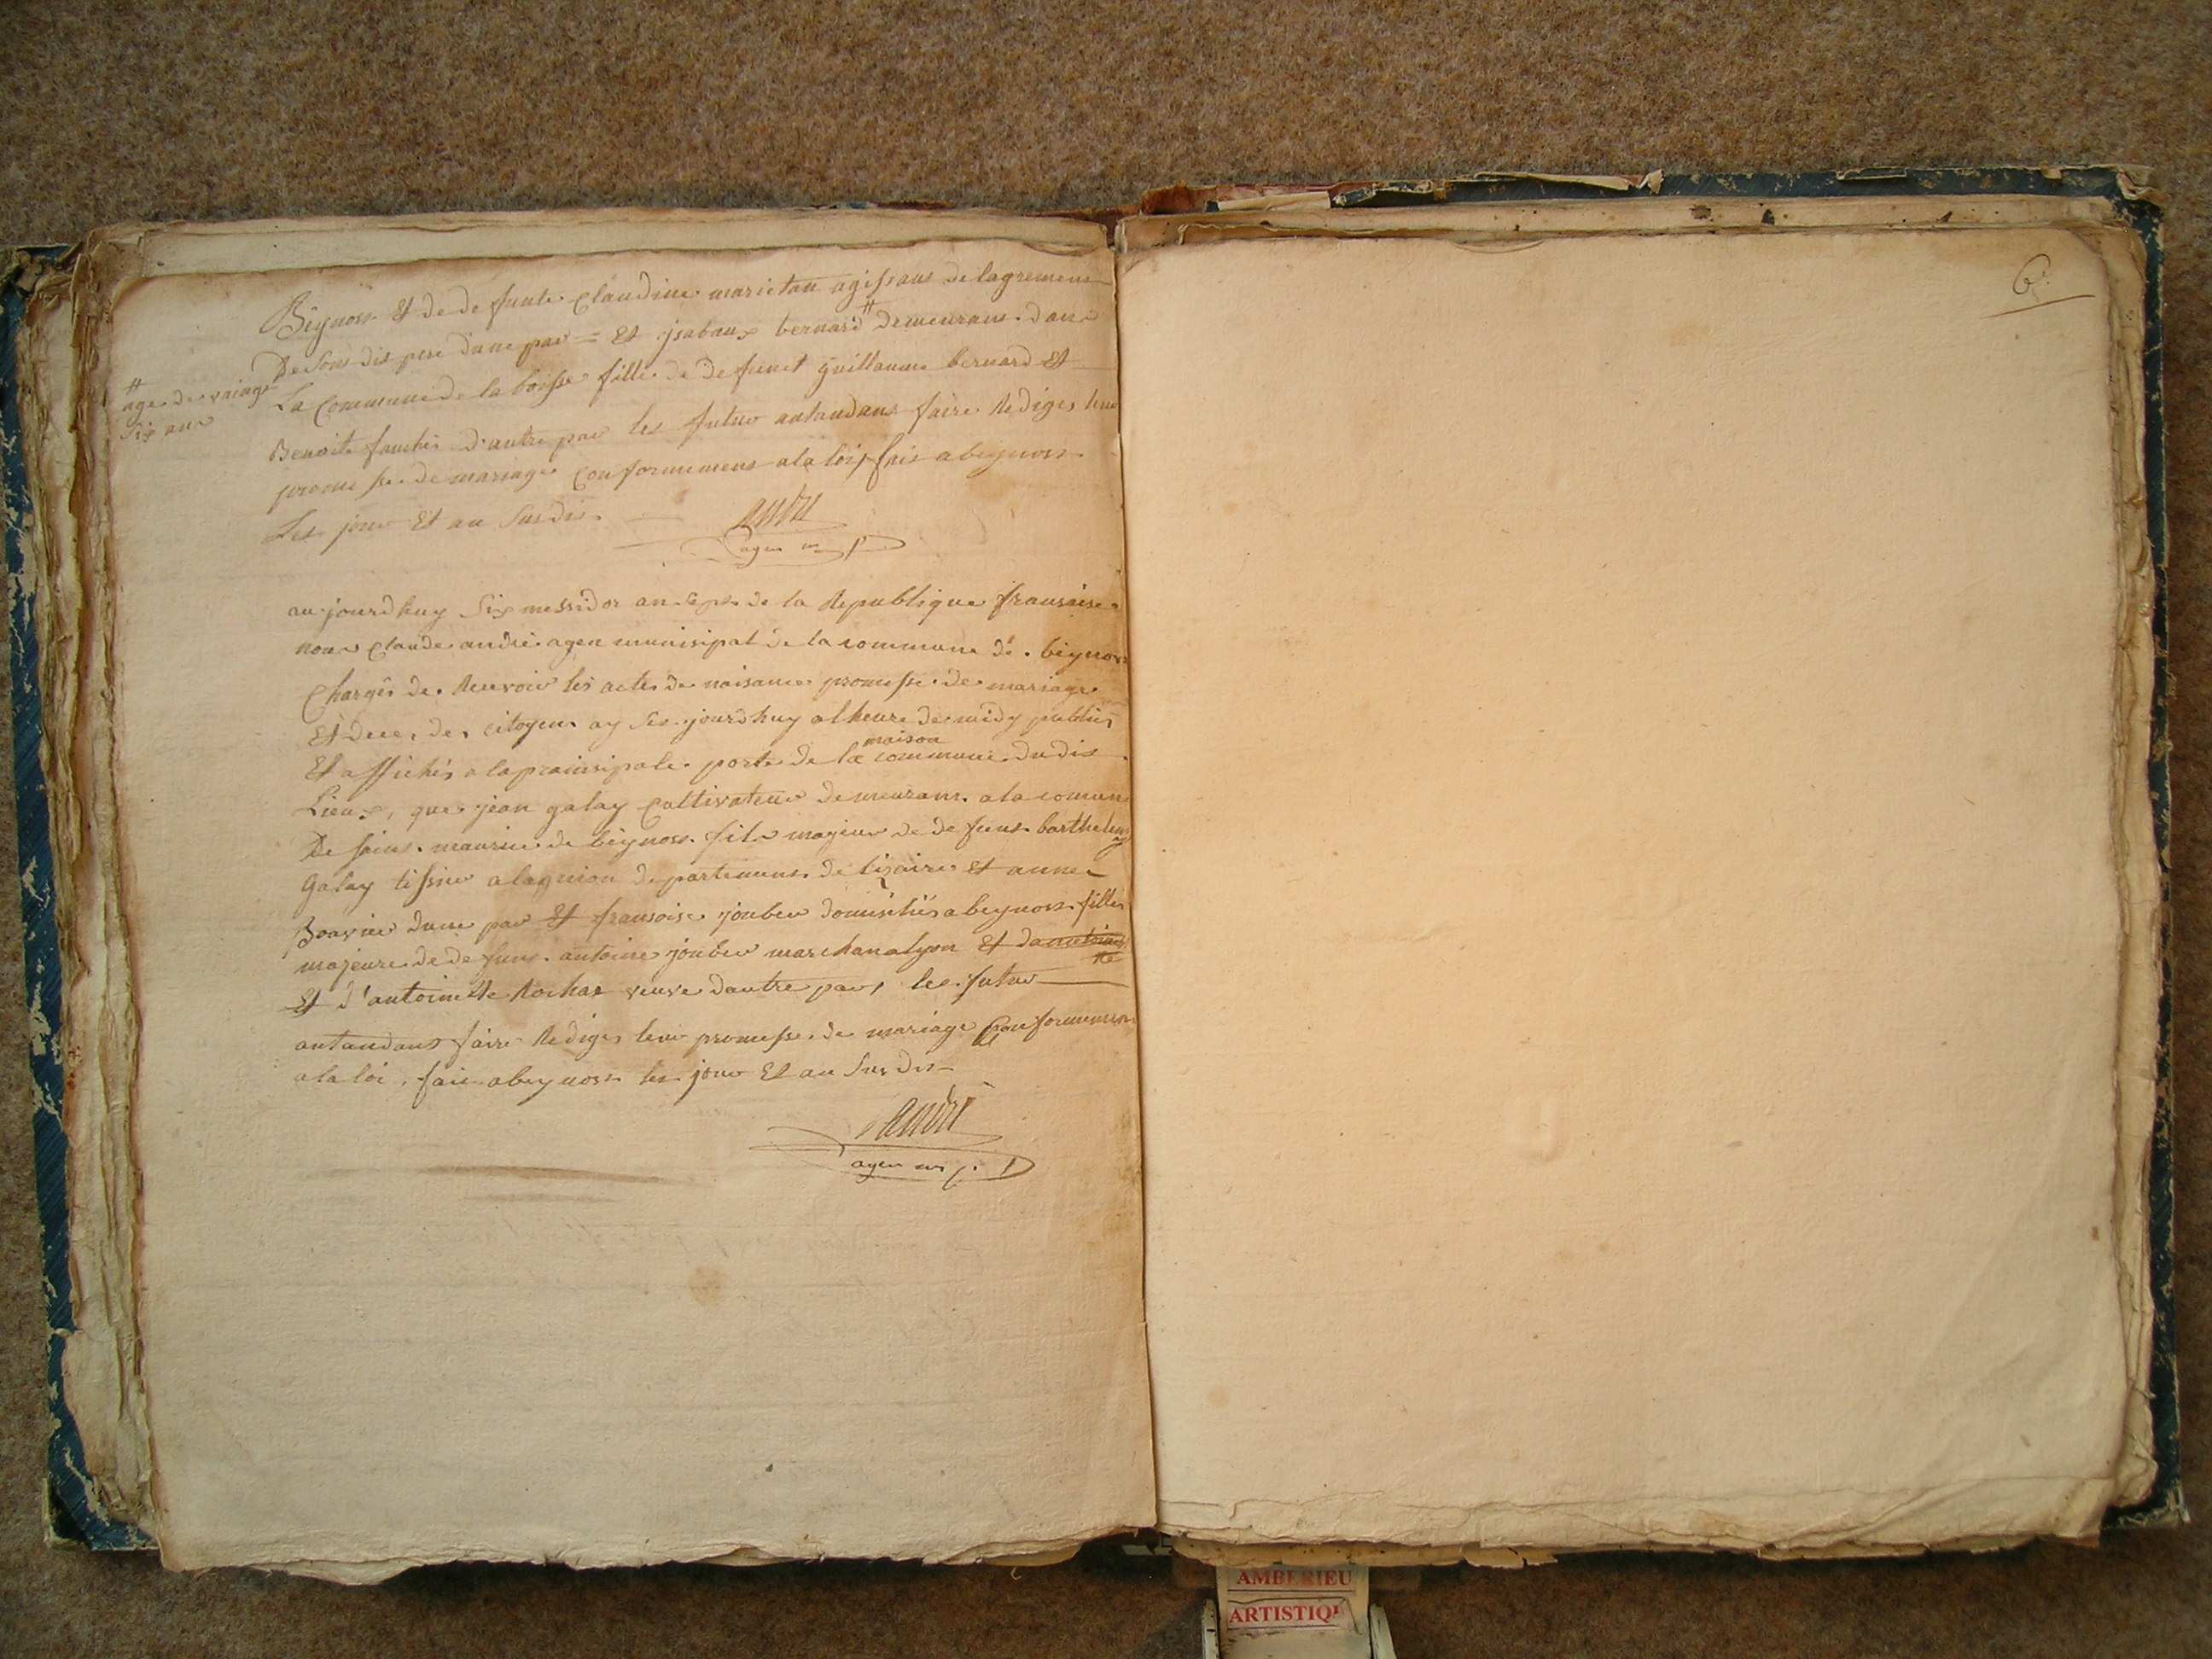 Beynost Et de defunte Claudine marietan agissans de lagremens
De Sons dis pere dune par = Et ysabaux bernard # demeurans dans
# age de vaingt
six ans
La Commune de la boisse fille de defunct guillaume bernard Et
Benoite fauchés d'autre par les futur antandans faire Rediges leur
promesse de mariage Conformemens a la loi, fais a beynost
Les jour Et an Susdis
André
agen m p
aujourdhuy Six messidor an Sept de la Republique fransaise
nous Claude andré agen munisipal de la commune de beynost
Chargés de Recevoir les actes de naisance promesse de mariage
Et deces des citoyens ay Ses jourdhuy alheure de midy publiés
Et affichés a la prainsipale porte de la maison commune dudis
Lieux, que jean galay Cultivateur demeurans a la comune
De sains maurice de beynost fils majeur de defuns barthelemy
Galay tissier a lagnion departemens de lizaire Et anne
Bouvier dune par Et fransoise jouber domisiliés a beynost fille
majeure de defuns antoine joubер marchan a lyon Et dantoine
tte
Et d'antoinette Rochas veuve dautre par, les futur
antandans faire Rediges leur promesse de mariage Conformemens
a la loi, fais a beynost les jour Et an Sus dis
André
agen m p.
6.
AMBERIEU
ARTISTIQ